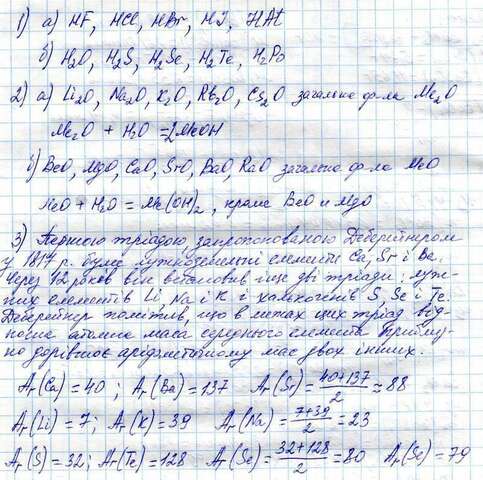 1) а) HF, HCl, HBr, HJ, HAt
б) H₂O, H₂S, H₂Se, H₂Te, H₂Po
2) а) Li₂O, Na₂O, K₂O, Rb₂O, Cs₂O загальна ф-ла Me₂O
Me₂O + H₂O = 2MeOH
б) BeO, MgO, CaO, SrO, BaO, RaO загальна ф-ла MeO
MeO + H₂O = Me(OH)₂, крім BeO и MgO
3) Першою тріадою, запропонованою Деберейнером
у 1817 р. були лужноземельні елементи Ca, Sr і Ba.
Через 12 років він встановив іще дві тріади: луж-
них елементів Li, Na і K і халькогенів S, Se і Te.
Деберейнер помітив, що в межах цих тріад від-
носна атомна маса середнього елемента приблиз-
но дорівнює арідметичному мас двох інших.
Ar(Ca) = 40 ; Ar(Ba) = 137 Ar(Sr) = (40+137)/2 = 88
Ar(Li) = 7; Ar(K) = 39 Ar(Na) = (7+39)/2 = 23
Ar(S) = 32; Ar(Te) = 128 Ar(Se) = (32+128)/2 = 80 Ar(Se) = 79